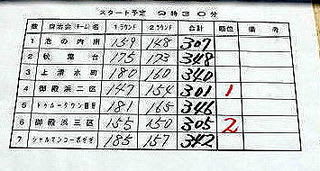 スタート予定 9時30分
数 自治会(チーム)名 1.ラウンド 2.ラウンド 合計 順位 備考
1 池の内団 159 148 307
2 秋葉台 175 173 348
3 上清水町 180 160 340
4 御殿浜二区 147 154 301 1
5 トゥルータウン 181 165 346
6 御殿浜三区 155 150 305 2
7 シャルマンコーポゼゼ 185 157 342